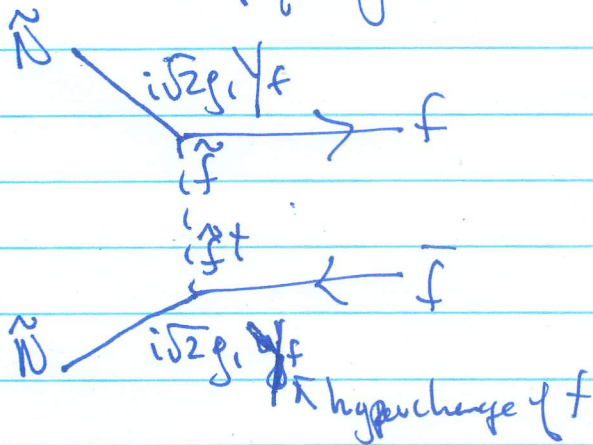 Ñ
i√2g₁ Y_f
f
f̃
f̃†
f̄
Ñ
i√2g₁ Y_f
hypercharge of f